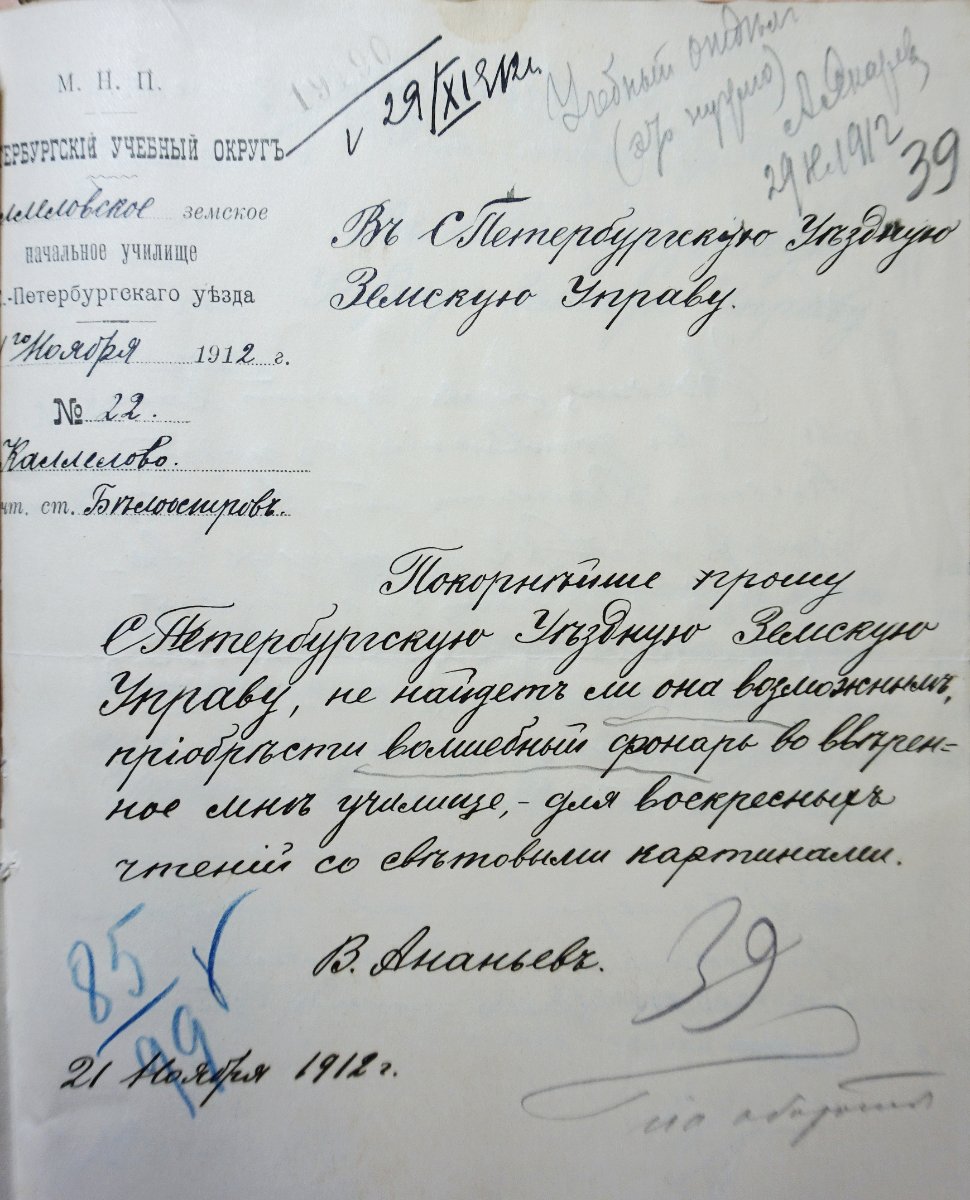 М. Н. П.
ЕРБУРГСКІЙ УЧЕБНЫЙ ОКРУГЪ
ммеловское земское
начальное училище
-Петербургскаго уѣзда
го Ноября 1912 г.
№ 22.
Каммелово.
чт. ст. Бѣлоостровъ.
29/XI 912 г.
Учебный отдѣл
29 XI 1912
39
Въ СПетербургскую Уѣздную
Земскую Управу.
Покорнѣйше прошу
СПетербургскую Уѣздную Земскую
Управу, не найдетъ ли она возможнымъ,
пріобрѣсти волшебный фонарь во ввѣрен=
ное мнѣ училище, - для воскресныхъ
чтеній со свѣтовыми картинами.
В. Ананьевъ.
85
99
39
21 Ноября 1912 г.
на оборотѣ